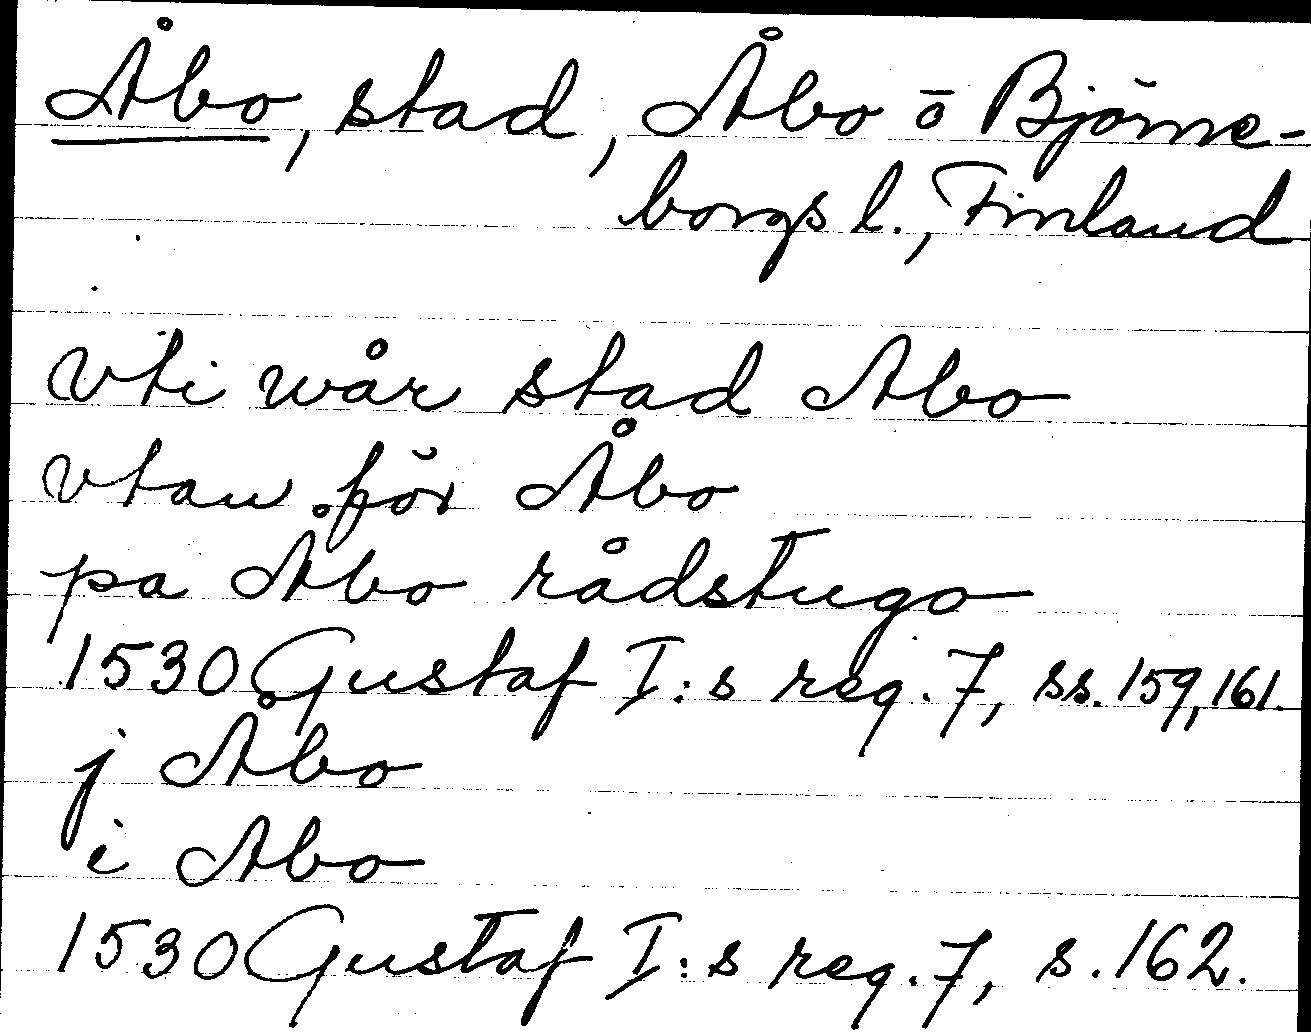 Åbo, stad, Åbo o Björne-
borgs l., Finland
vti wår stad Abo
vtan för Åbo
pa Åbo rådstugo
1530 Gustaf I:s reg. 7, ss. 159, 161.
j Åbo
i Abo
1530 Gustaf I:s reg. 7, s. 162.